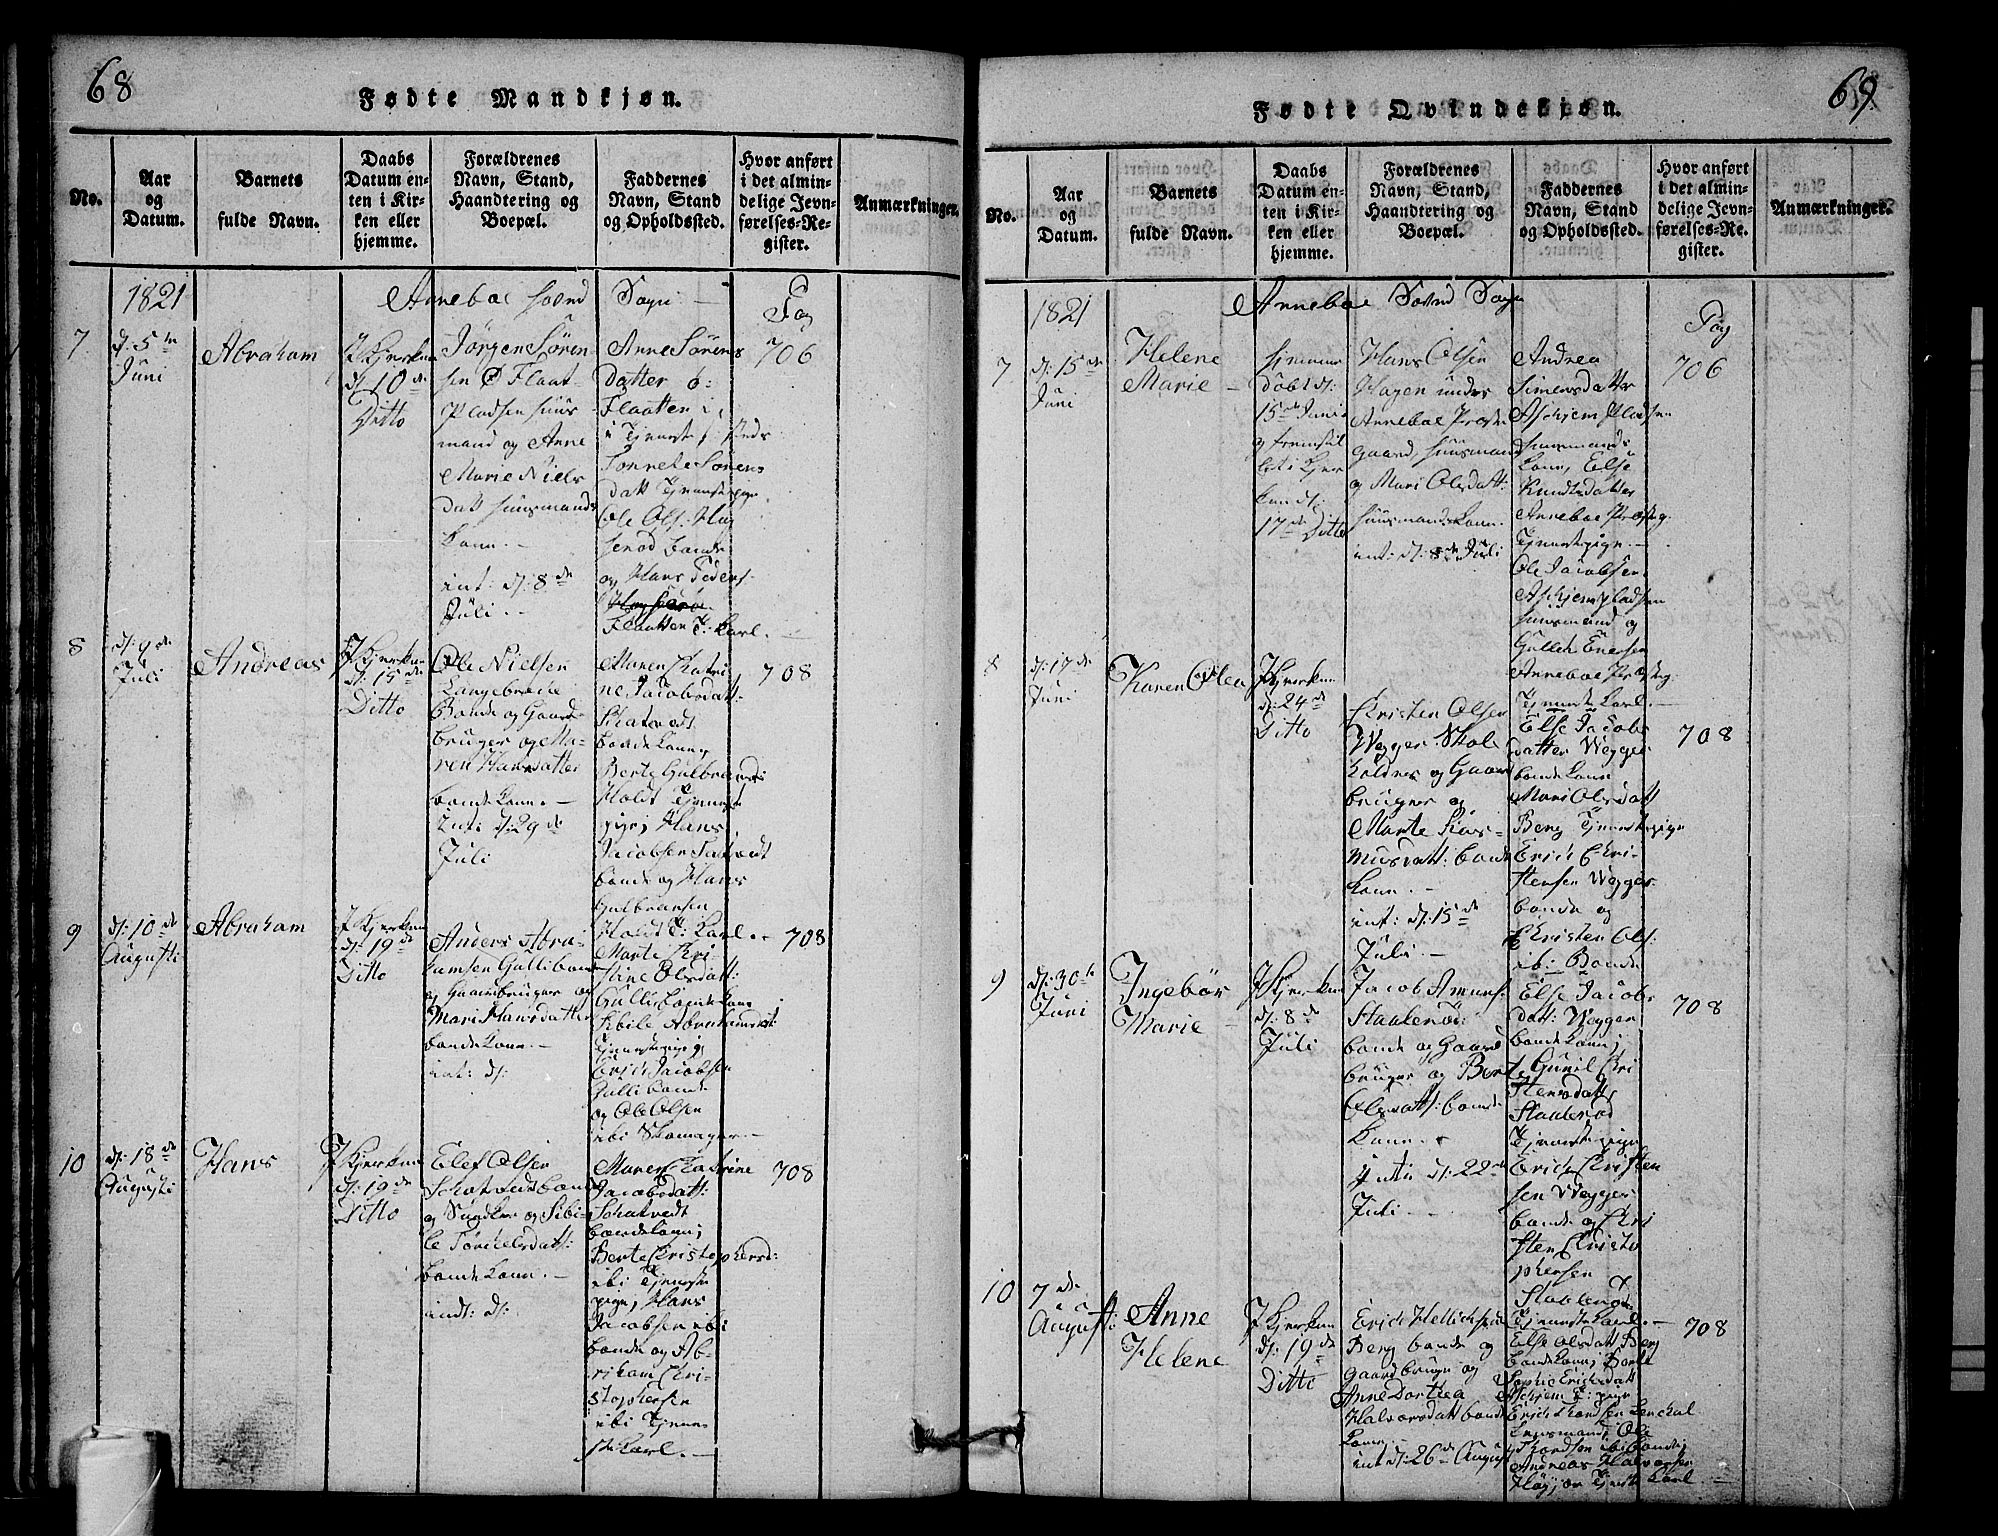 68
Fødte Mandkjøn.
No.
Aar
og
Datum.
Barnets
fulde Navn.
Daabs
Datum en-
ten i Kir-
ken eller
hjemme.
Forældrenes
Navn, Stand,
Haandtering og
Boepæl.
Faddernes
Navn, Stand
og Opholdssted.
Hvor anført
i det almin-
delige Jevn-
førelses-Re-
gister.
Anmærkninger.
1821
Anneboe Sogn
Pag
7
d: 5te
Juni
Abraham
I Kjerken
d: 10de
Ditto
Jørgen Søren-
sen Ø Flaat-
Pladsen huus-
mand og Anne
Marie Niels
datt huusmands
Kone. -
int: d: 8de
Juli. -
Anne Sørens
Datter
Flaatten i,
i Tjeneste
Tonnete Sørens
datt Tjenestepige
Ole Ols:
bonde
og Hans Peders:
Flaatten T: Karl. -
706
8
d: 9de
Juli
Andreas
I Kjerken
d: 15de
Ditto
Ole Nielsen
Langebrække
Bonde og Gaard-
bruger og Ma-
ren Hansdatter
bonde Kone. -
Int: d: 29de
Juli
Maren Katri
ne Jacobsdatt:
Skatvedt
bonde Kone,
Berte Gulbrandsd:
Holdt Tjenest
pige, Hans
Jacobsen Skatvedt
bonde og Hans
Gulbransen
Holdt T: Karl. -
708
9
d: 10de
Augusti
Abraham
I Kjerken
d: 19de
Ditto
Anders Abra-
hamsen Gulli bonde
og Gaardbruger og
Mari Hansdatter
bonde Kone. -
int: d:
Marte Kri-
stine Olsdatt:
Gulli bonde Kone
Sibile Abrahamsdatt:
Tjenestepige
Erich Jacobsen
Gulli bonde
og Ole Olsen
ibi Skomager. -
708
10
d: 18de
Augusti
Hans
I Kjerken
d: 19de
Ditto
Elef Olsen
Skatvedt bonde
og Snedker og Sibi-
le Torkelsdatt:
bonde Kone. -
indt: d:
Maren Catrine
Jacobsdatt:
Schatvedt
bonde Kone;
Berte Cristophersd:
ibi Tjeneste
pige, Hans
Jacobsen ibi
bonde og Ab-
raham Cri-
stophersen
ibi Tjenes
te Karl. -
708
69
Fødte Qvindekjøn.
No.
Aar
og
Datum.
Barnets
fulde Navn.
Daabs
Datum en-
ten i Kir-
ken eller
hjemme.
Forældrenes
Navn, Stand,
Haandtering og
Boepæl.
Faddernes
Navn, Stand
og Opholdssted.
Hvor anført
i det almin-
delige Jevn-
førelses-Re-
gister.
Anmærkninger.
1821
Anneboe Sogn
Pag
7
d: 15de
Juni
Helene
Marie -
hjemme
døbt d:
15de Juni
og fremstil
let i Kjer
ken d:
17de Ditto
Hans Olsen
Hagen under
Annebae Præste
gaard, huusmand
og Mari Olsdatt:
huusmands Kone.
int: d: 8de Juli
Andrea
Simensdatter
Askjem Pladsen
huusmands
Kone, Else
Knudtsdatter
Annebae Præstg.
Tjenestepige. -
Ole Jacobsen
Askjempladsen
huusmand og
Gullek Enersen
Annebae Præstg.
Tjeneste Karl. -
706
8
d: 17de
Juni
Karen Olea
I Kjerken
d: 24de
Ditto
Christen Olsen
Wegger Skole
holder og Gaard
bruger og
Marte Ras-
musdatt: bonde
Kone. -
int: d: 15de
Juli. -
Else Jacobs
datter Wegger
bonde Kone
Mari Olsdatt
Berg Tjenestepige
Erich Chri-
stensen Wegger
bonde og
Christen Ols:
ibi Bonde
708
9
d: 30te
Juni
Ingebør
Marie -
I Kjerken
d: 8de
Juli
Jacob Amunds:
Staalerød
bonde og Gaard
bruger og Berte
Olsdatt: bonde
Kone. -
Inti d: 22de
Juli. -
Else Jacobs
datt: Wegger
bonde Kone;
Guril Cri
stensdatt,
Staalerød
Tjenestepige
Erich Cristen
sen Wegger
bonde og Cri
sten Cristo
phersen
Staalerød
Tjeneste Karl. -
708
10
7de
August:
Anne
Helene
I Kjerken
d: 19de
Ditto
Erich Hellichsen
Berg bonde og
gaardbruger og
Anne Dorthea
Halvorsdatt bonde
Kone -
int d: 26de August
Else Olsdatt Berg
bonde Kone; Berte
Sophie Erichsdatt
Askjem T: pige
Erich
huusmand, Ole
Thordsen ibi bonde;
Andreas Halvorsen
Høyjor Tjeneste Karl -
708